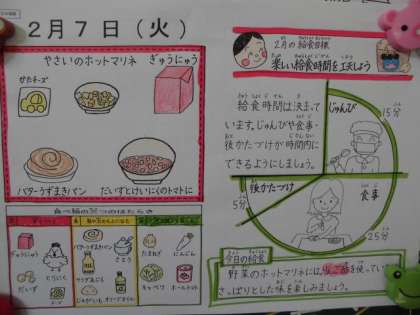 2月7日(火)
やさいのホットマリネ
ぎゅうにゅう
かたチーズ
バターうずまきパン
だいずとけいにくのトマトに
ぎゅうにゅう
とりにく
だいず
チーズ
バターうずまきパン
サラダあぶら
さとう
じゃがいも
オリーブあぶら
たまねぎ
にんじん
キャベツ
ホールトマト
2月の給食目標
楽しい給食時間を工夫しよう
給食時間は決まって
います。じゅんびや食事・
後かたづけが時間内に
できるようにしましょう。
じゅんび
15分
後かたづけ
5分
食事
25分
今日の給食
野菜のホットマリネには、りんご酢を使ってい
さっぱりとした味を楽しみましょう。